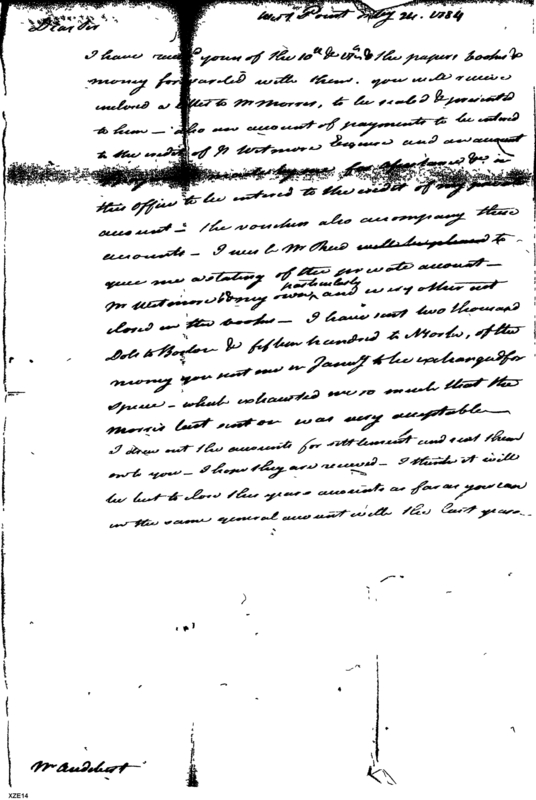 West Point May 24. 1784
Dear Sir
I have recd yours of the 10th & 17th & the papers books &
money forwarded with them. you will receive
inclosed a letter to Mr Morris, to be sealed & presented
to him — also an account of payments to be entered
to the credit of P Wetmore Esquire and an account
by me for &c in
this office to be entered to the credit of my private
account — the vouchers also accompany these
accounts — I will be
give me a stating of the private account —
Mr Wetmore & my own, particularly and every other not
closed in the books — I have sent two thousand
Dols to Boston & fifteen hundred to N York, of the
money you sent me in Jany to be exchanged for
specie — which exhausted me so much that the
Morris last sent on was very acceptable
I drew out the accounts for settlement and sent them
on to you — I hope they are received — I think it will
be best to close this years accounts as far as you can
in the same general account with the last years —
Mr Audebert
XZE14